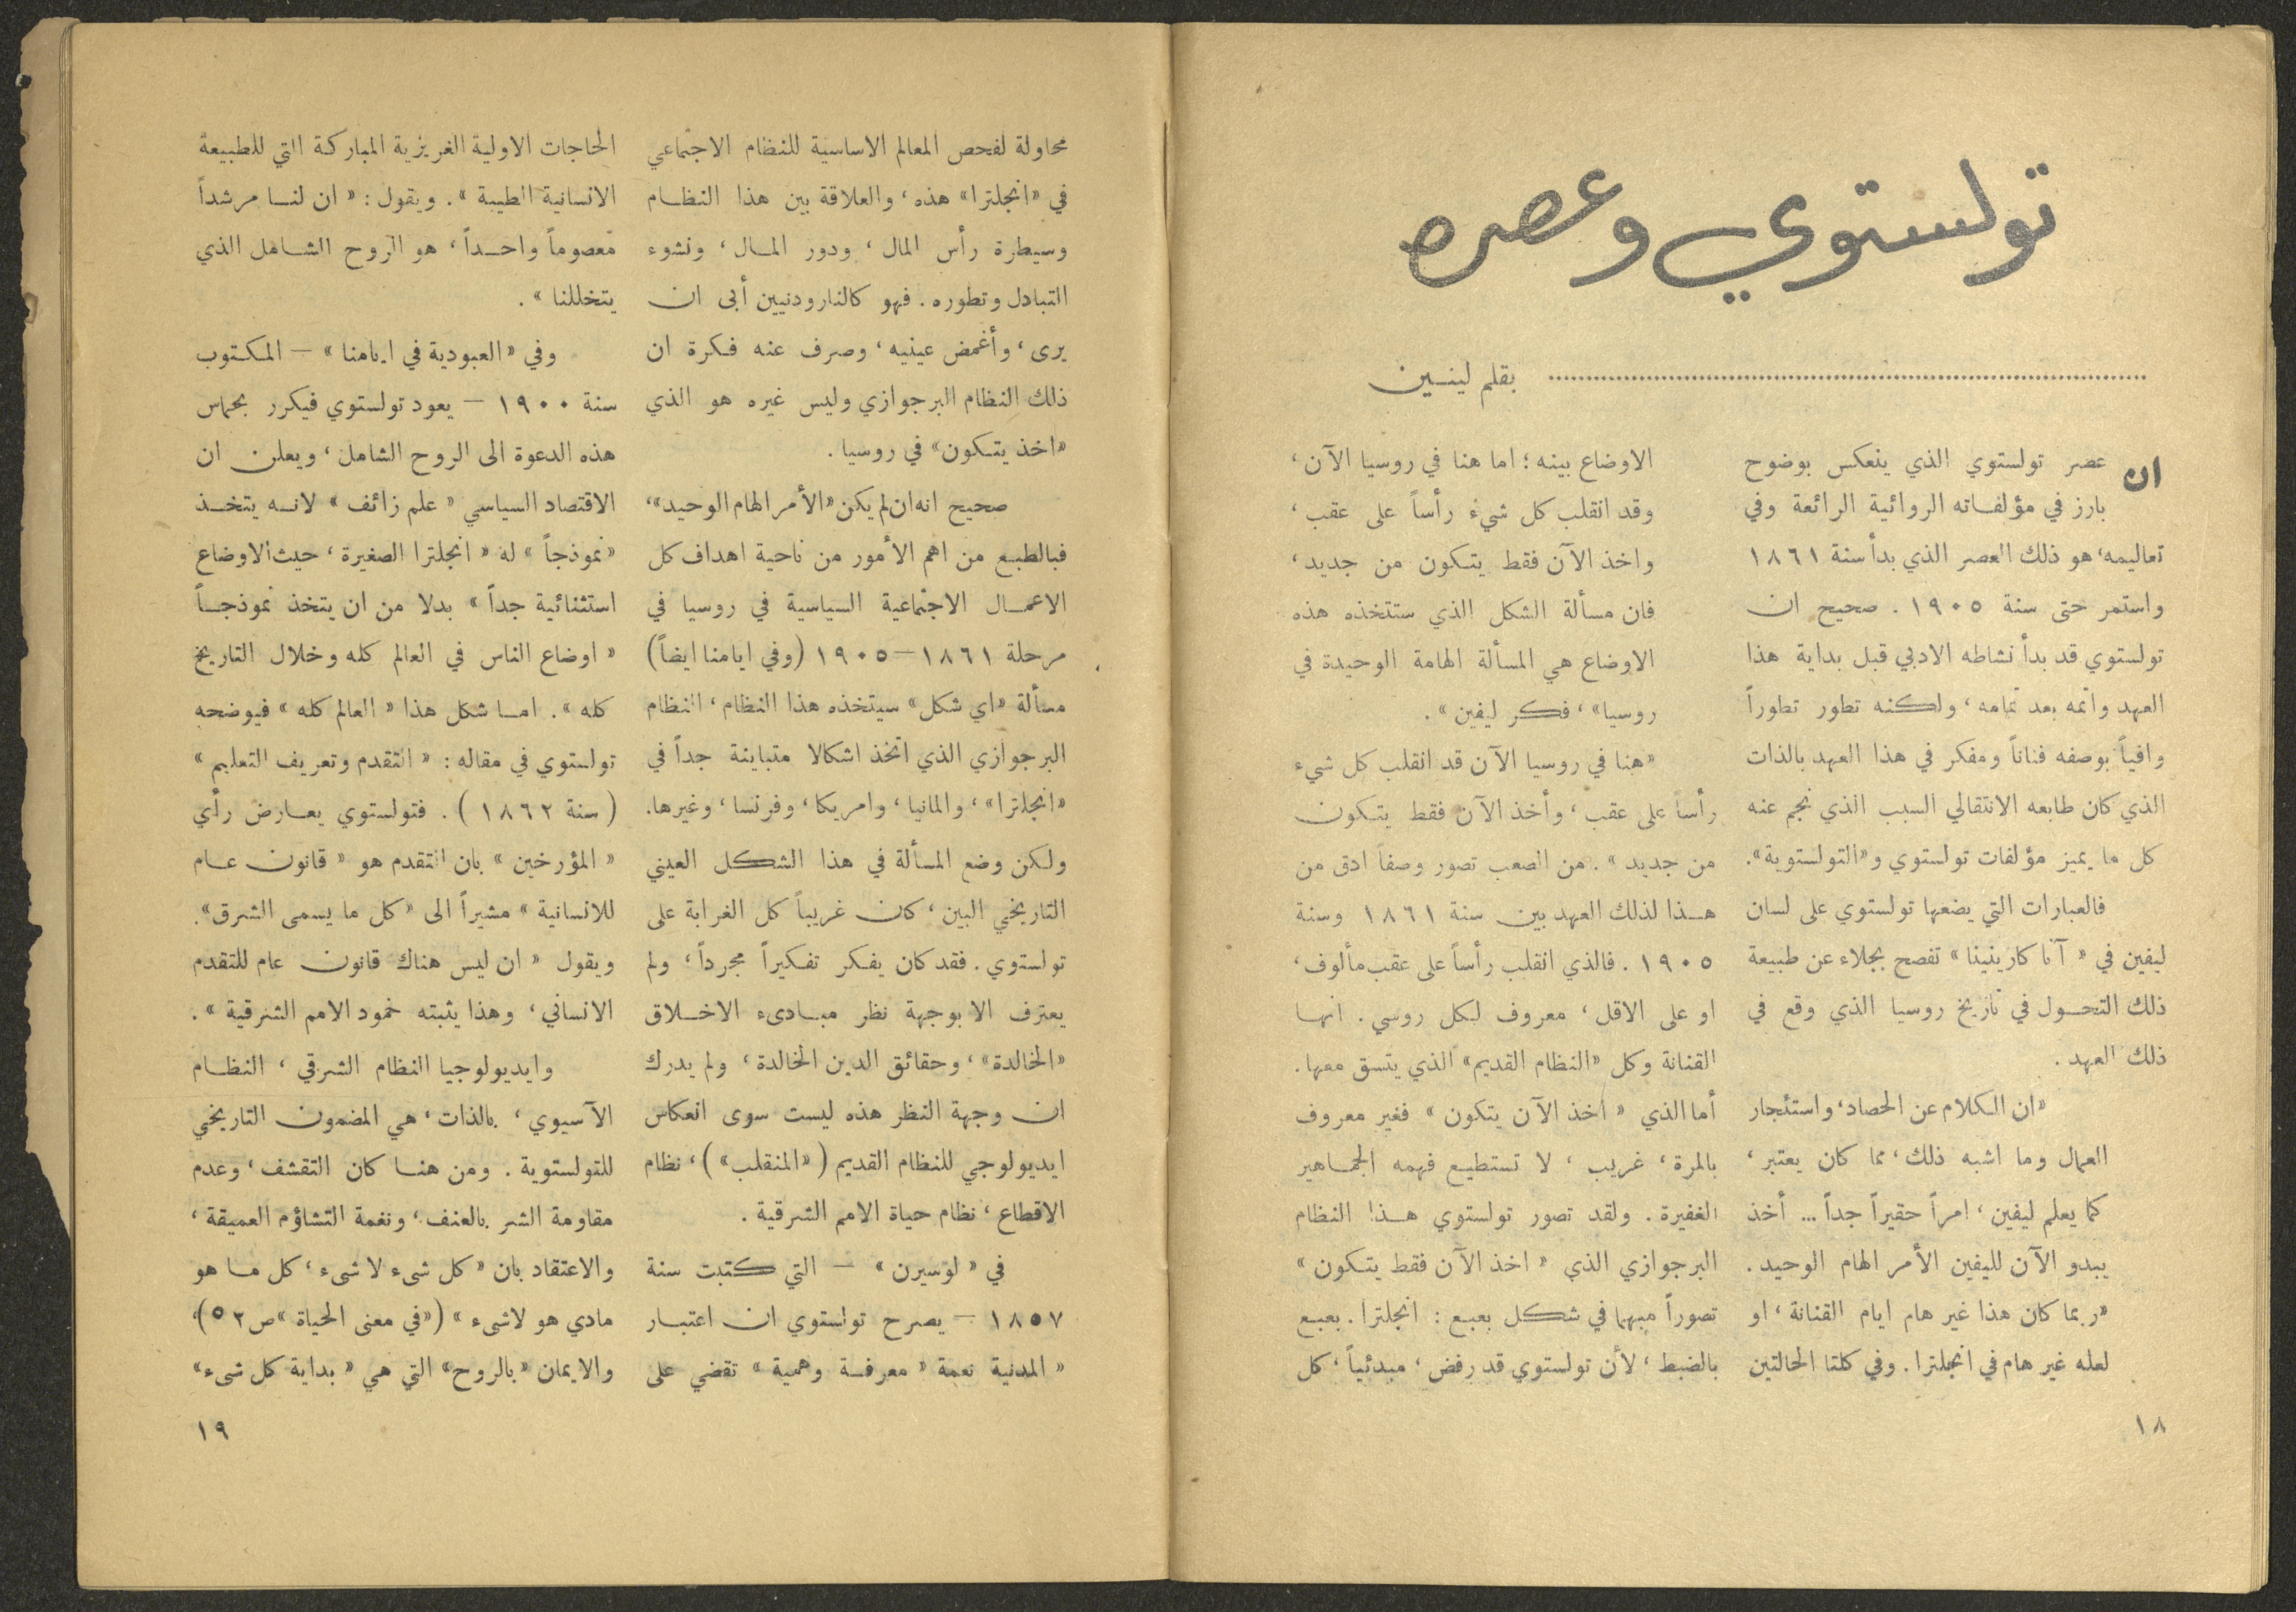 تولستوي وعصره
بقلم لينــين
ان عصر تولستوي الذي ينعكس بوضوح
بارز في مؤلفــاته الروائية الرائعة وفي
تعاليمه، هو ذلك العصر الذي بدأ سنة ١٨٦١
واستمر حتى سنة ١٩٠٥ . صحيح ان
تولستوي قد بدأ نشاطه الادبي قبل بداية هذا
العهد واتمه بعد تمامه، ولكنه تطور تطوراً
وافياً بوصفه فناناً ومفكر في هذا العهد بالذات
الذي كان طابعه الانتقالي السبب الذي نجم عنه
كل ما يميز مؤلفات تولستوي و«التولستوية».
فالعبارات التي يضعها تولستوي على لسان
ليفين في « آنا كارينينا » تفصح بجلاء عن طبيعة
ذلك التحــول في تاريخ روسيا الذي وقع في
ذلك العهد .
«ان الكلام عن الحصاد، واستئجار
العمال وما اشبه ذلك، مما كان يعتبر،
كما يعلم ليفين، امراً حقيراً جداً ... أخذ
يبدو الآن لليفين الأمر الهام الوحيد .
«ربما كان هذا غير هام ايام القنانة، او
لعله غير هام في انجلترا. وفي كلتا الحالتين
الاوضاع بينه؛ اما هنا في روسيا الآن،
وقد انقلب كل شيء رأساً على عقب،
واخذ الآن فقط يتكون من جديد،
فان مسألة الشكل الذي ستتخذه هذه
الاوضاع هي المسألة الهامة الوحيدة في
روسيا»، فكر ليفين » .
«هنا في روسيا الآن قد انقلب كل شيء
رأساً على عقب، وأخذ الآن فقط يتكون
من جديد » . من الصعب تصور وصفاً ادق من
هــذا لذلك العهد بين سنة ١٨٦١ وسنة
١٩٠٥ . فالذي انقلب رأساً على عقب مألوف،
او على الاقل، معروف لكل روسي . انهــا
القنانة وكل «النظام القديم» الذي يتسق معها.
أما الذي « اخذ الآن يتكون » فغير معروف
بالمرة، غريب، لا تستطيع فهمه الجماهير
الغفيرة . ولقد تصور تولستوي هــذا النظام
البرجوازي الذي « اخذ الآن فقط يتكون »
تصوراً مبهما في شكل بعبع : انجلترا . بعبع
بالضبط، لأن تولستوي قد رفض، مبدئياً، كل
١٨
محاولة لفحص المعالم الاساسية للنظام الاجتماعي
في «انجلترا» هذه، والعلاقة بين هذا النظــام
وسيطرة رأس المال، ودور المــال، ونشوء
التبادل وتطوره . فهو كالنارودنيين أبى ان
يرى، وأغمض عينيه، وصرف عنه فكرة ان
ذلك النظام البرجوازي وليس غيره هو الذي
«اخذ يتكون» في روسيا .
صحيح انه ان لم يكن «الأمر الهام الوحيد»،
فبالطبع من اهم الأمور من ناحية اهداف كل
الاعمــال الاجتماعية السياسية في روسيا في
مرحلة ١٨٦١–١٩٠٥ (وفي ايامنا ايضاً)
مسألة «اي شكل» سيتخذه هذا النظام، النظام
البرجوازي الذي اتخذ اشكالا متباينة جداً في
«انجلترا»، والمانيا، وامريكا، وفرنسا، وغيرها.
ولكن وضع المسألة في هذا الشكل العيني
التاريخي البين، كان غريباً كل الغرابة على
تولستوي . فقد كان يفكر تفكيراً مجرداً، ولم
يعترف الا بوجهة نظر مبــادىء الاخــلاق
«الخالدة»، وحقائق الدين الخالدة، ولم يدرك
ان وجهة النظر هذه ليست سوى انعكاس
ايديولوجي للنظام القديم («المنقلب»)، نظام
الاقطاع، نظام حياة الامم الشرقية .
في « لوسيرن » – التي كتبت سنة
١٨٥٧ – يصرح تولستوي ان اعتبــار
« المدنية نعمة « معرفــة وهمية » تقضي على
الحاجات الاولية الغريزية المباركة التي للطبيعة
الانسانية الطيبة » . ويقول : « ان لنــا مرشداً
معصوماً واحــداً، هو الروح الشــامل الذي
يتخللنا » .
وفي «العبودية في ايامنا » – المكتوب
سنة ١٩٠٠ – يعود تولستوي فيكرر بحماس
هذه الدعوة الى الروح الشامل، ويعلن ان
الاقتصاد السياسي « علم زائف » لانــه يتخــذ
«نموذجاً » له « انجلترا الصغيرة، حيث الاوضاع
استثنائية جداً » بدلا من ان يتخذ نموذجــاً
« اوضاع الناس في العالم كله وخلال التاريخ
كله » . امــا شكل هذا « العالم كله » فيوضحه
تولستوي في مقاله : « التقدم وتعريف التعليم »
( سنة ١٨٦٢ ) . فتولستوي يعــارض رأي
« المؤرخين » بان التقدم هو « قانون عــام
للانسانية » مشيراً الى «كل ما يسمى الشرق».
ويقول « ان ليس هناك قانون عام للتقدم
الانساني، وهذا يثبته خمود الامم الشرقية » .
وايديولوجيا النظام الشرقي، النظــام
الآسيوي، بالذات، هي المضمون التاريخي
للتولستوية . ومن هنــا كان التقشف، وعدم
مقاومة الشر بالعنف، ونغمة التشاؤم العميقة،
والاعتقاد بان « كل شىء لا شىء، كل مــا هو
مادي هو لاشىء » («في معنى الحياة » ص ٥٢)،
والايمان «بالروح» التي هي « بداية كل شىء»
١٩